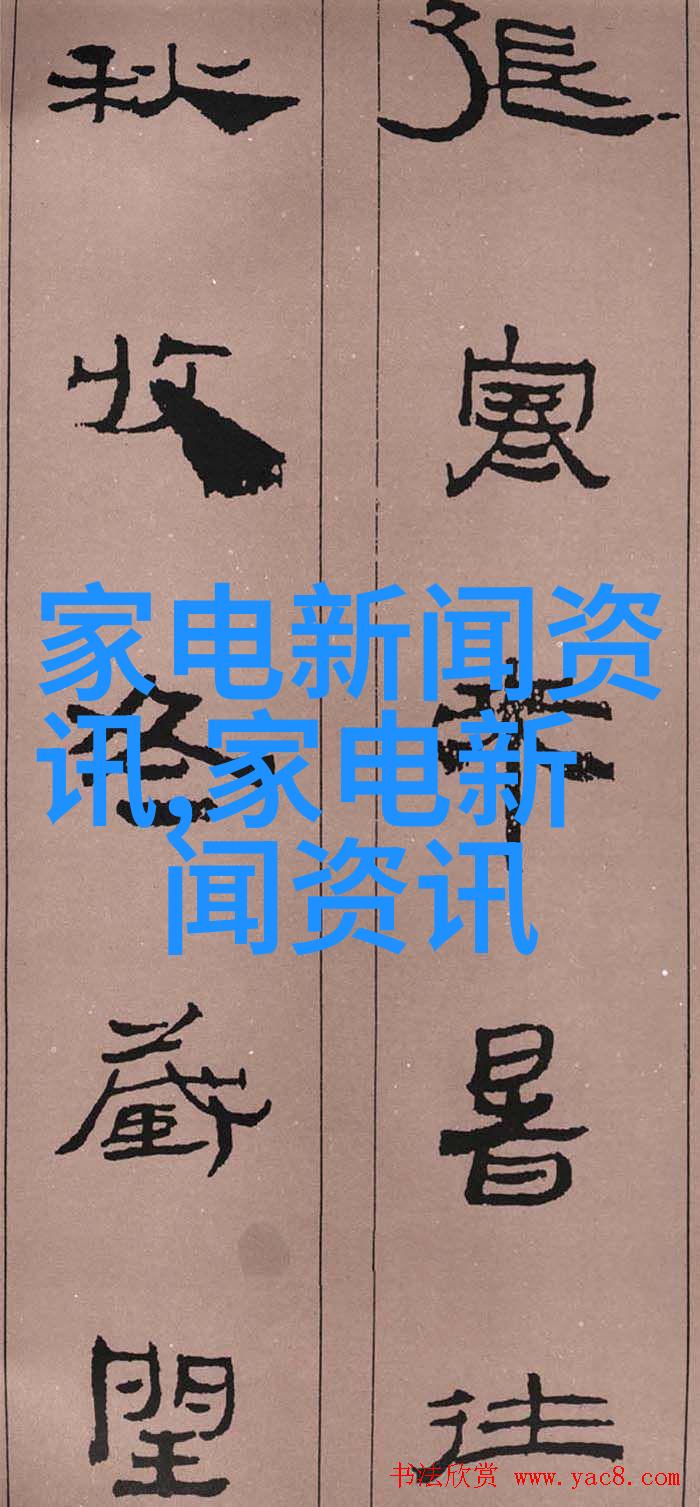 張寒來暑往
秋收冬藏閏
家电新闻资
讯,家电新
闻资讯
书法欣赏 www.yac8.com